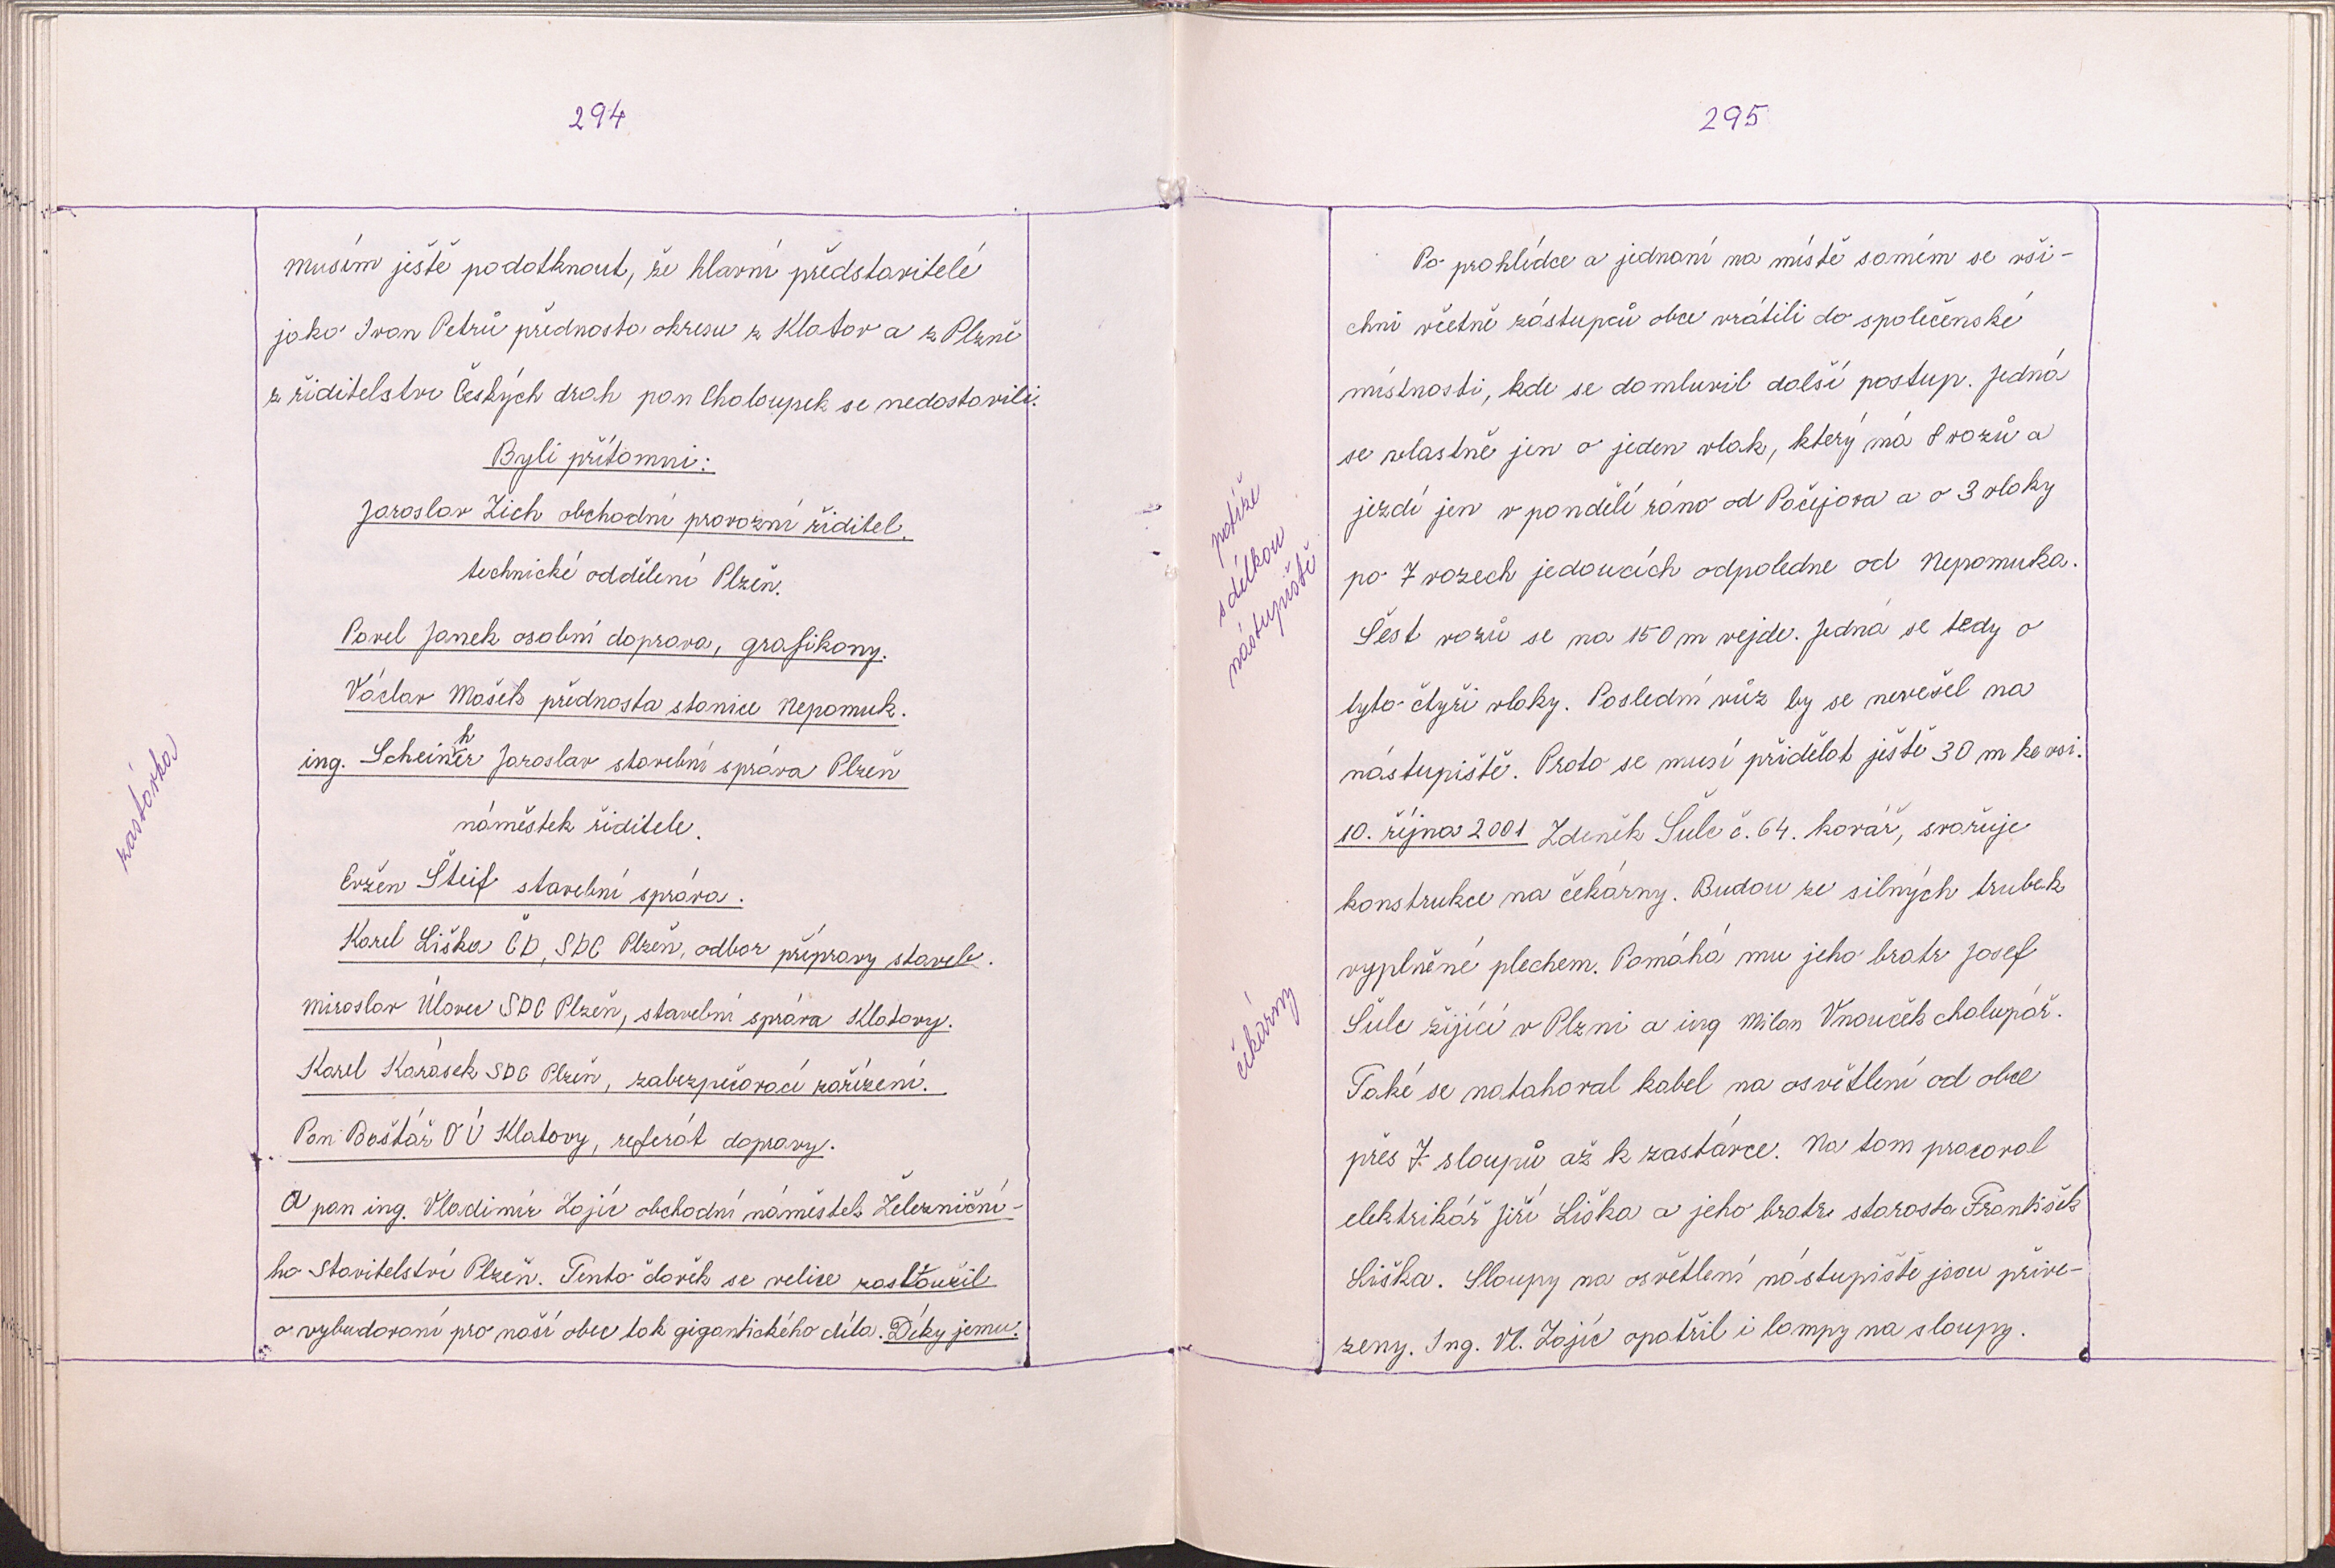 294
musím ještě podotknout, že hlavní představitelé
jako Ivan Petrů přednosta okresu z Klatov a z Plzně
z ředitelství Českých drah pan Chaloupek se nedostavili.
Byli přítomni:
Jaroslav Zich obchodní provozní ředitel.
technické oddělení Plzeň.
Pavel Janek osobní doprava, grafikony.
Václav Mašek přednosta stanice Nepomuk.
ing. Scheinherr Jaroslav stavební správa Plzeň
náměstek ředitele.
Evžen Šteif stavební správa.
Karel Liška ČD, SDC Plzeň, odbor přípravy staveb.
Miroslav Úlovec SDC Plzeň, stavební správa Klatovy.
Karel Karásek SDC Plzeň, zabezpečovací zařízení.
Pan Baštář OÚ Klatovy, referát dopravy.
A pan ing. Vladimír Zajíc obchodní náměstek Železniční-
ho stavitelství Plzeň. Tento člověk se velice zasloužil
o vybudování pro naší obec tak gigantického díla. Díky jemu.
zastávka
295
Po prohlídce a jednání na místě samém se vši-
chni včetně zástupců obce vrátili do společenské
místnosti, kde se domluvil další postup. Jedná
se vlastně jen o jeden vlak, který má 8 vozů a
jezdí jen v pondělí ráno od Pačejova a o 3 vlaky
po 7 vozech jedoucích odpoledne od Nepomuka.
Šest vozů se na 150 m vejde. Jedná se tedy o
tyto čtyři vlaky. Poslední vůz by se nevešel na
nástupiště. Proto se musí přidělat ještě 30 m ke vsi.
10. října 2001 Zdeněk Šulc č. 64. kovář, svařuje
konstrukce na čekárny. Budou ze silných trubek
vyplněné plechem. Pomáhá mu jeho bratr Josef
Šulc žijící v Plzni a ing Milan Vnouček chalupář.
Také se natahoval kabel na osvětlení od obce
přes 7 sloupů až k zastávce. Na tom pracoval
elektrikář Jiří Liška a jeho bratr starosta František
Liška. Sloupy na osvětlení nástupiště jsou přive-
zeny. Ing. Vl. Zajíc opatřil i lampy na sloupy.
potíže
s délkou
nástupiště
čekárny